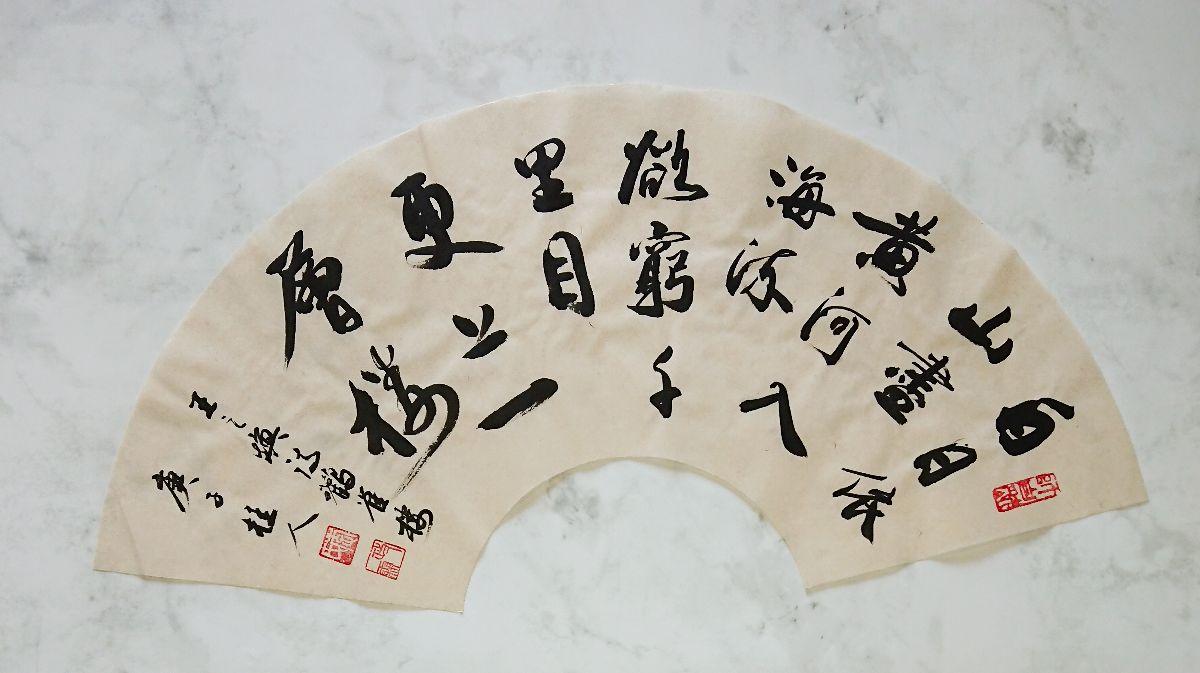 白日依
山盡
黃河入
海流
欲窮千
里目
更上一
層樓
王之渙詩鸛雀樓
庚子桂人